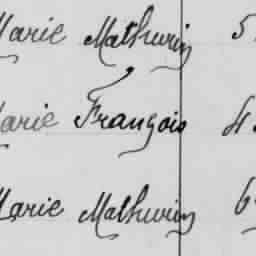 Marie Mathurin 5
Marie François 4
Marie Mathurin 6